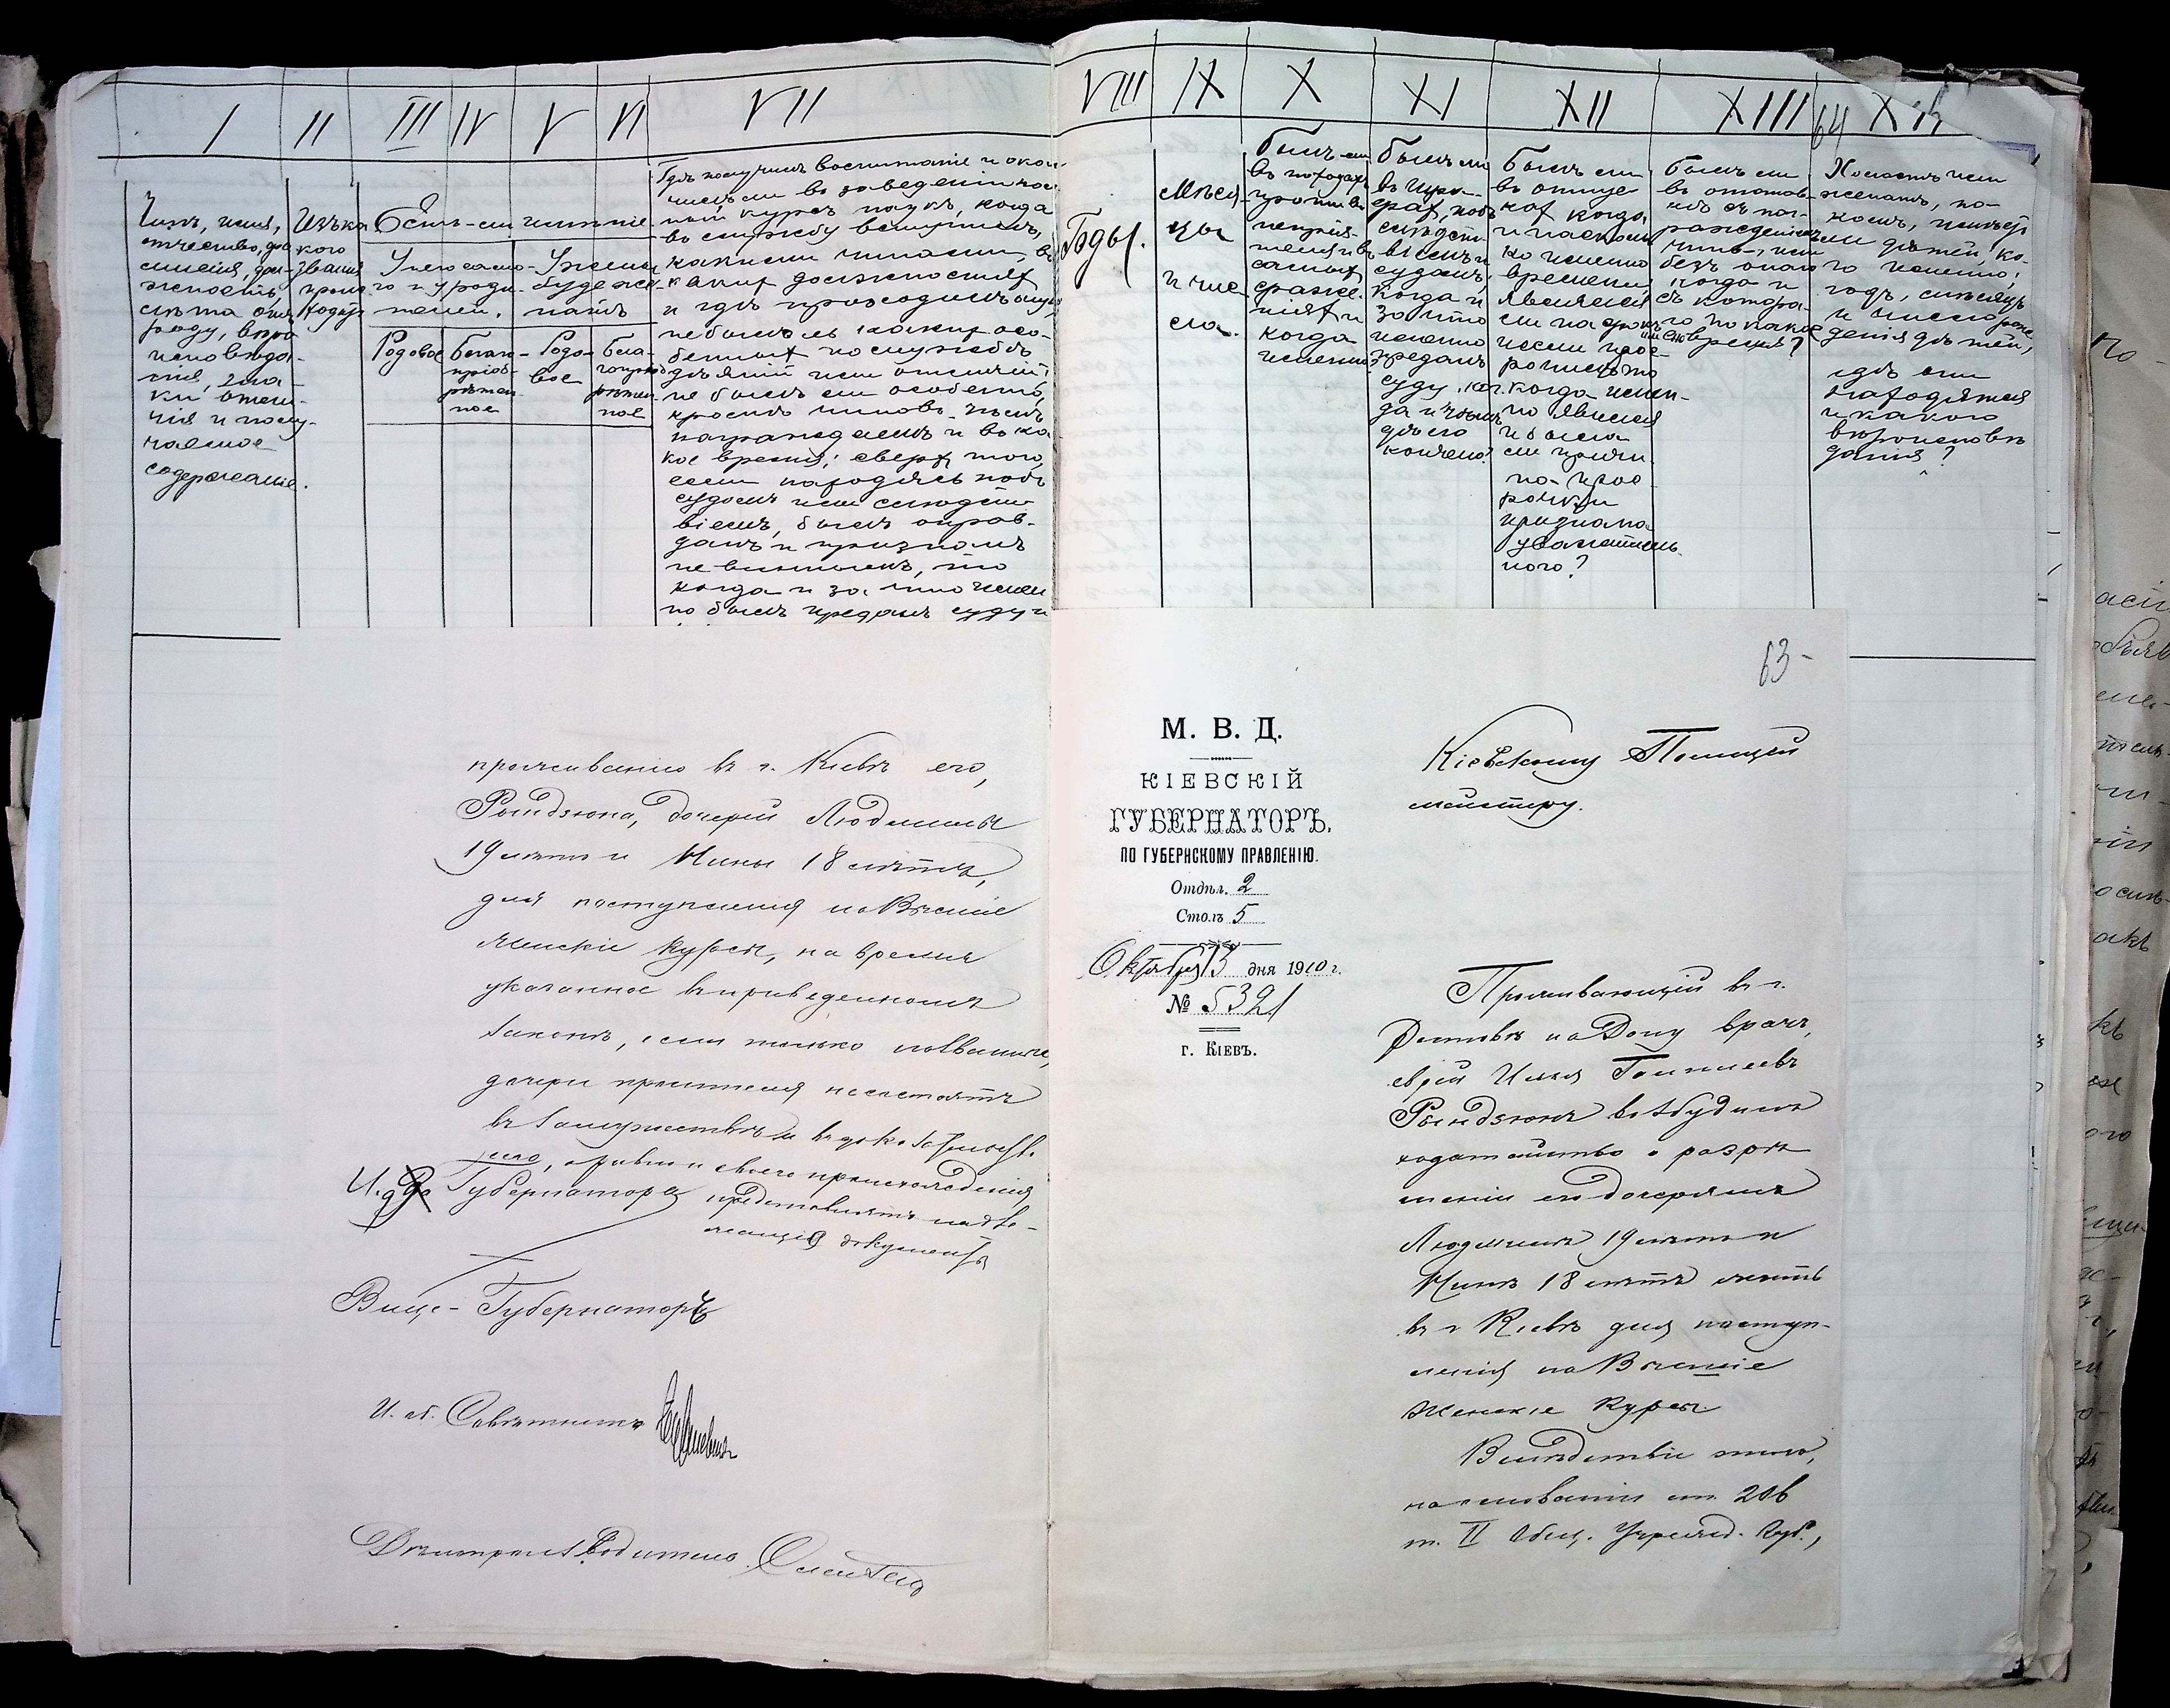 I II III IV V VI VII
Чинъ, имя,
отчество, фа-
милія, дол-
жность,
лѣта отъ
роду, вѣро
исповѣда-
нія, зна-
ки отли-
чія и полу-
чаемое
содержаніе.
Изъ ка
кого
званія
проис
ходитъ
Есть-ли имѣніе
У него само-
го и у роди-
телей.
У жены
буде же-
натъ
Родовое
Благо-
пріоб-
рѣтен-
ное
Родо-
вое
Бла-
гопріоб
рѣтен-
ное
Гдѣ получилъ воспитаніе и окон-
чилъ ли въ заведеніи пол-
ный курсъ наукъ, когда
въ службу вступилъ,
какими чинами, въ
какихъ должностяхъ
и гдѣ проходилъ оную,
не было ль какихъ осо-
бенныхъ по службѣ
дѣяній или отличій;
не былъ ли особенно,
кромѣ чиновъ, чѣмъ
награждаемъ и въ ка-
кое время; сверхъ того,
если находясь подъ
судомъ или слѣдст-
віемъ, былъ оправ-
данъ и признанъ
невиннымъ, то
когда и за что имен
но былъ преданъ суду и
VIII IX X XI XII XIII 64 XIV
Годы.
Мѣся-
цы
и чис-
ла.
Былъ-ли
въ походахъ
противъ
непрія-
теля и въ
самыхъ
сраже-
ніяхъ и
когда
именно
Былъ ли
въ штра-
фахъ, подъ
слѣдст-
віемъ и
судомъ;
когда и
за что
именно
преданъ
суду, ког-
да и чѣмъ
дѣло
кончено?
Былъ ли
въ отпус
кахъ когда
и насколь
ко именно
времени
явился
ли на срокъ
если прос-
рочилъ то
когда имен-
но явился
и была
ли причи-
на прос-
рочки
признана
уважитель-
ною?
Былъ ли
въ отстав-
кѣ съ наг-
ражденіемъ
чина, или
безъ онаго
когда и
съ котора-
го по какое
время?
Холостъ или
женатъ, на
комъ, имѣетъ
ли дѣтей, ко-
го именно;
годъ, мѣсяцъ
и число рож-
денія дѣтей,
гдѣ они
находятся
и какого
вѣроисповѣ
данія?
проживанію въ г. Кіевѣ его,
Рындзюна, дочерей Людмилы
19 лѣтъ и Нины 18 лѣтъ,
для поступленія на Высшіе
женскіе курсы, на время
указанное въ приведенномъ
законѣ, если только названныя
дочери просителя не состоятъ
въ замужествѣ и въ доказательст-
во, а равно и своего происхожденія
представятъ надле-
жащіе документы
И. д. Губернатора
Вице-Губернаторъ
И. об. Совѣтника
Дѣлопроизводитель
63-
М. В. Д.
КІЕВСКІЙ
ГУБЕРНАТОРЪ,
ПО ГУБЕРНСКОМУ ПРАВЛЕНІЮ.
Отдѣл. 2
Столъ 5
Октября 13 дня 1910 г.
№ 5321
г. Кіевъ.
Кіевскому Полицей
мейстеру.
Проживающій въ г.
Ростовѣ на Дону врачъ,
еврей Илья
Рындзюнъ возбудилъ
ходатайство о разрѣ
шеніи его дочерямъ
Людмилѣ 19 лѣтъ и
Нинѣ 18 лѣтъ жить
въ г Кіевѣ для поступ-
ленія на Высшіе
Женскіе Курсы.
Вслѣдствіе этого,
на основаніи ст. 206
т. II Общ. Учрежд. Губ.,